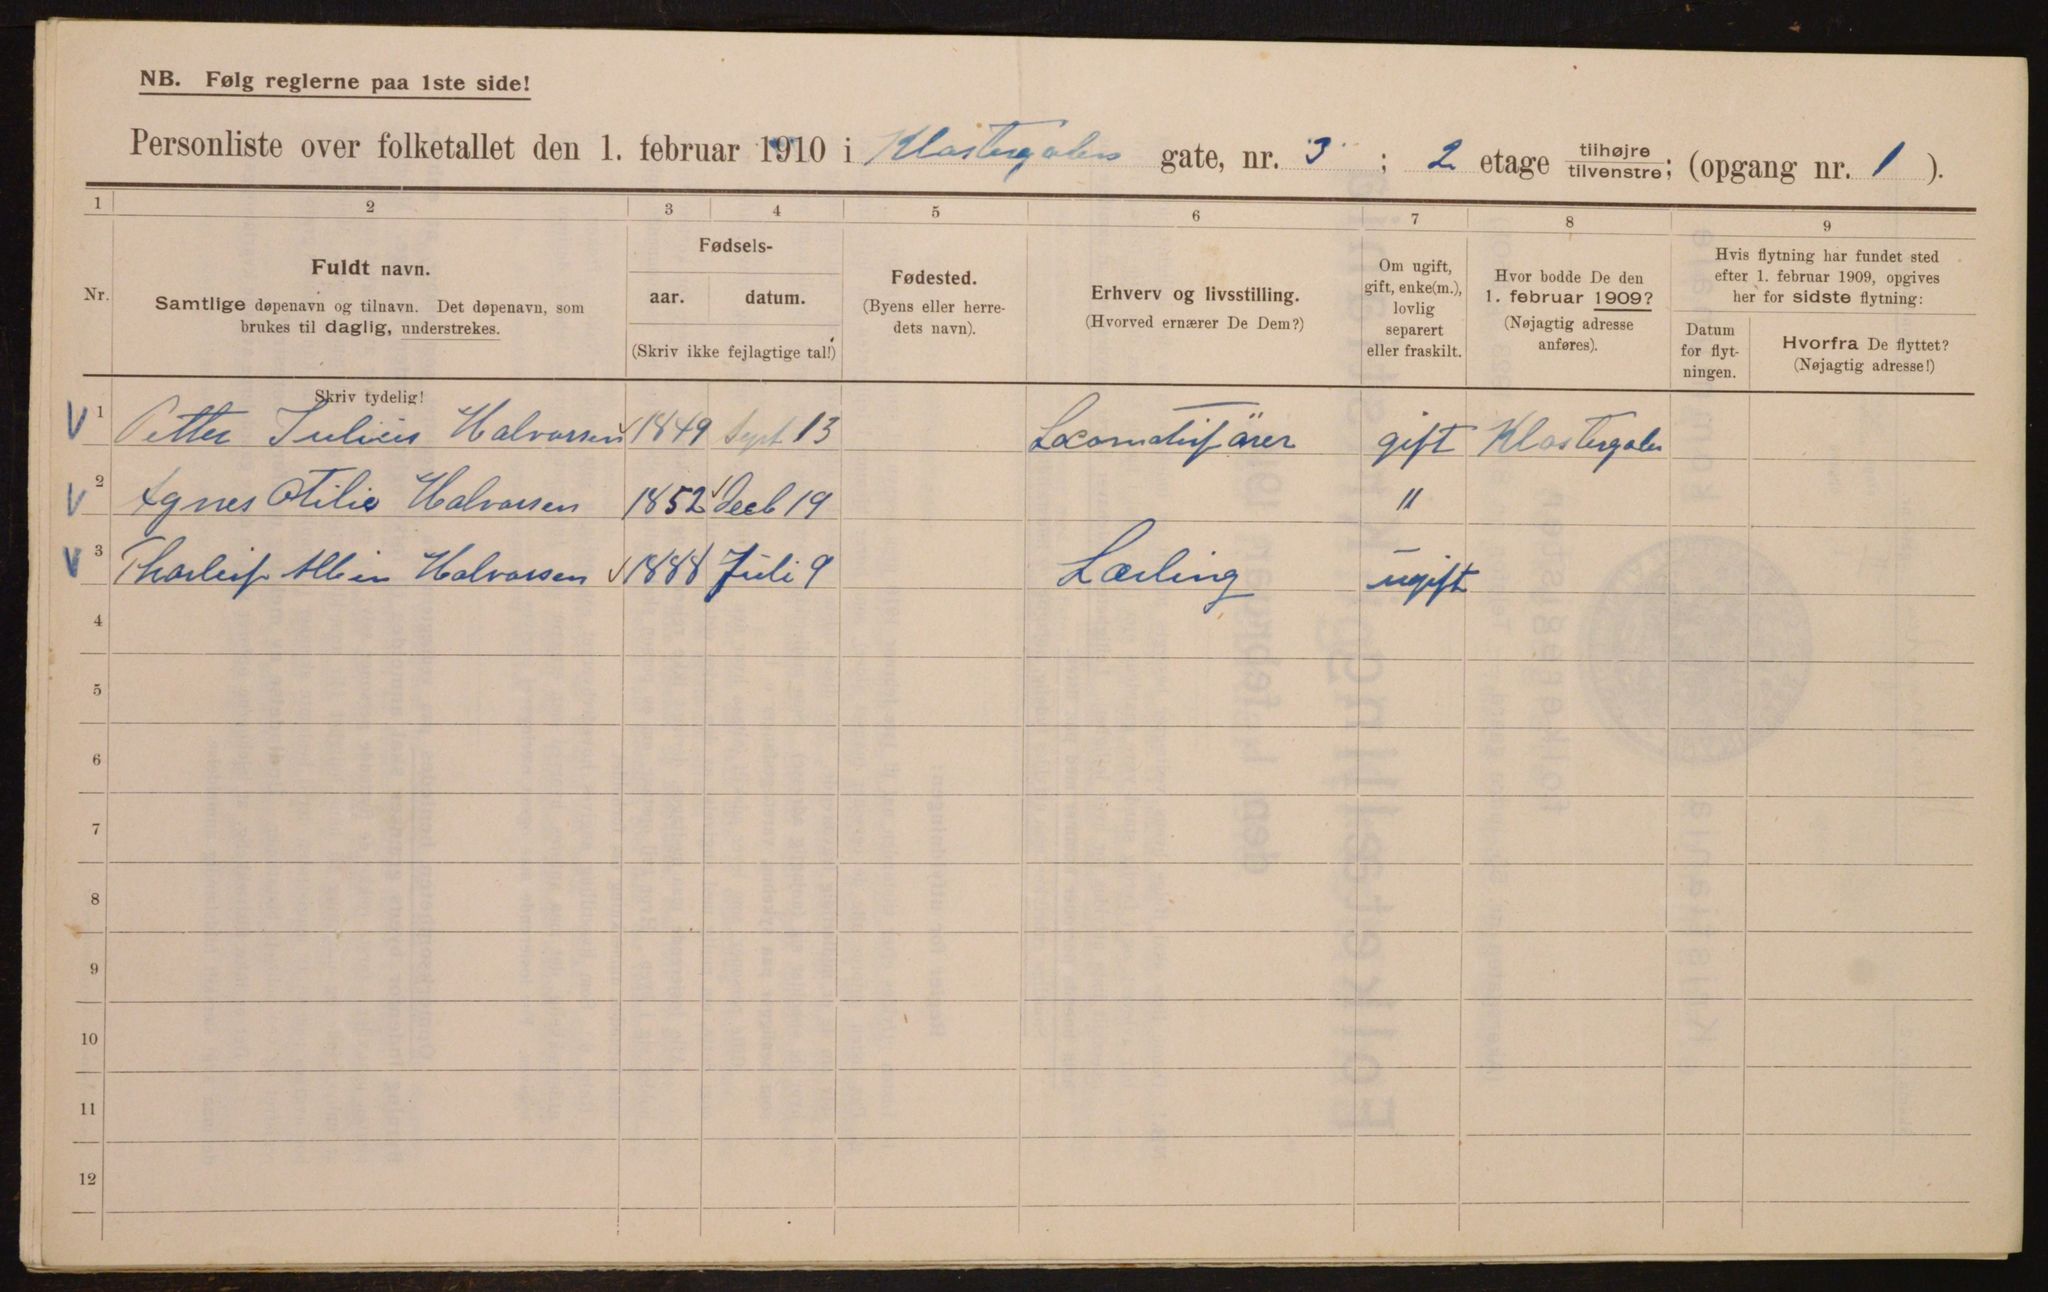 NB. Følg reglerne paa 1ste side!
Personliste over folketallet den 1. februar 1910 i Klostergaden gate, nr. 3 ; 2 etage tilhøjre/tilvenstre; (opgang nr. 1 ).
1 2 3 4 5 6 7 8 9
Nr.
Fuldt navn.
Samtlige døpenavn og tilnavn. Det døpenavn, som
brukes til daglig, understrekes.
Skriv tydelig!
Fødsels-
aar. datum.
(Skriv ikke fejlagtige tal!)
Fødested.
(Byens eller herre-
dets navn).
Erhverv og livsstilling.
(Hvorved ernærer De Dem?)
Om ugift,
gift, enke(m.),
lovlig
separert
eller fraskilt.
Hvor bodde De den
1. februar 1909?
(Nøjagtig adresse
anføres).
Hvis flytning har fundet sted
efter 1. februar 1909, opgives
her for sidste flytning:
Datum
for flyt-
ningen.
Hvorfra De flyttet?
(Nøjagtig adresse!)
V 1 Petter Julius Halvorsen 1849 Sept 13 Locomotivförer gift Klostergaden
V 2 Agnes Otilie Halvorsen 1852 Decb 19 "
V 3 Thorleif Albin Halvorsen 1888 Juli 9 Lærling ugift
4
5
6
7
8
9
10
11
12